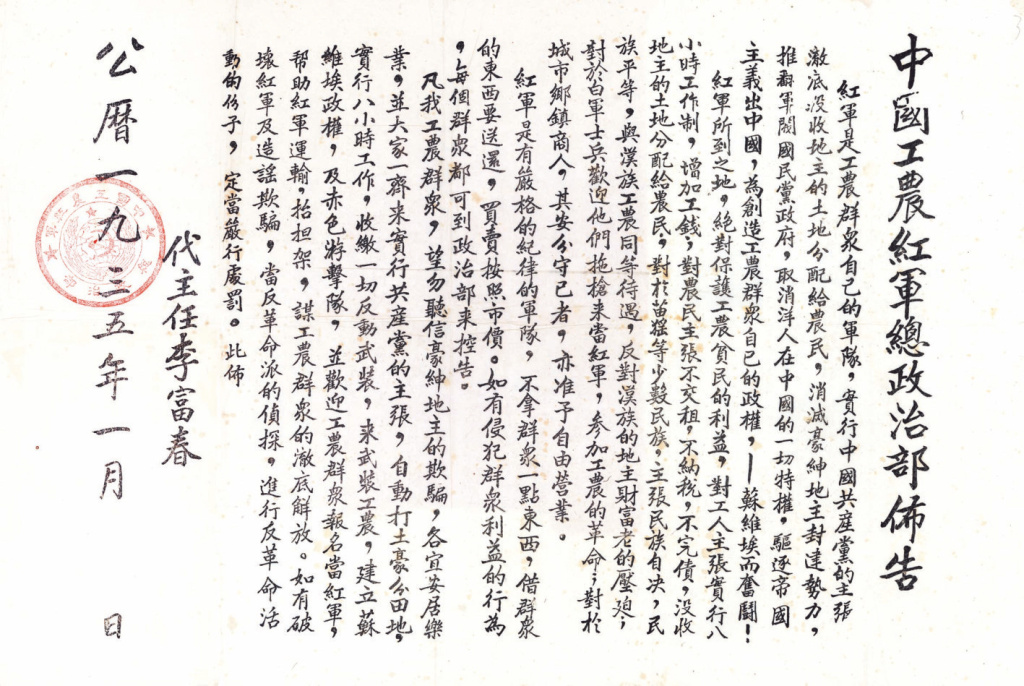 中國工農紅軍總政治部佈告
紅軍是工農群衆自己的軍隊，實行中國共産黨的主張
澈底没收地主的土地分配給農民，消滅豪紳地主封建勢力，
推翻軍閥國民黨政府，取消洋人在中國的一切特權，驅逐帝國
主義出中國，為創造工農群衆自己的政權，——蘇維埃而奮鬪！
紅軍所到之地，絕對保護工農貧民的利益，對工人主張實行八
小時工作制，增加工錢；對農民主張不交租，不納税，不完債，没收
地主的土地分配給農民，對於苗猺等少數民族，主張民族自决，民
族平等，與漢族工農同等待遇，反對漢族的地主財富老的壓迫；
對於白軍士兵歡迎他們拖搶来當紅軍，參加工農的革命；對於
城市鄉鎮商人，其安分守己者，亦准予自由營業。
紅軍是有嚴格的紀律的軍隊，不拿群衆一點東西，借群衆
的東西要送還，買賣按照市價。如有侵犯群衆利益的行為
，每個群衆都可到政治部来控告。
凡我工農群衆，望勿聽信豪紳地主的欺騙，各宜安居樂
業，並大家一齊来實行共産黨的主張，自動打土豪分田地，
實行八小時工作，收繳一切反動武裝，来武裝工農，建立蘇
維埃政權，及赤色游擊隊，並歡迎工農群衆報名當紅軍，
帮助紅軍運輸，抬担架，謀工農群衆的澈底解放。如有破
壞紅軍及造謡欺騙，當反革命派的偵探，進行反革命活
動的份子，定當嚴行處罰。此佈
代主任李富春
公曆一九三五年一月 日